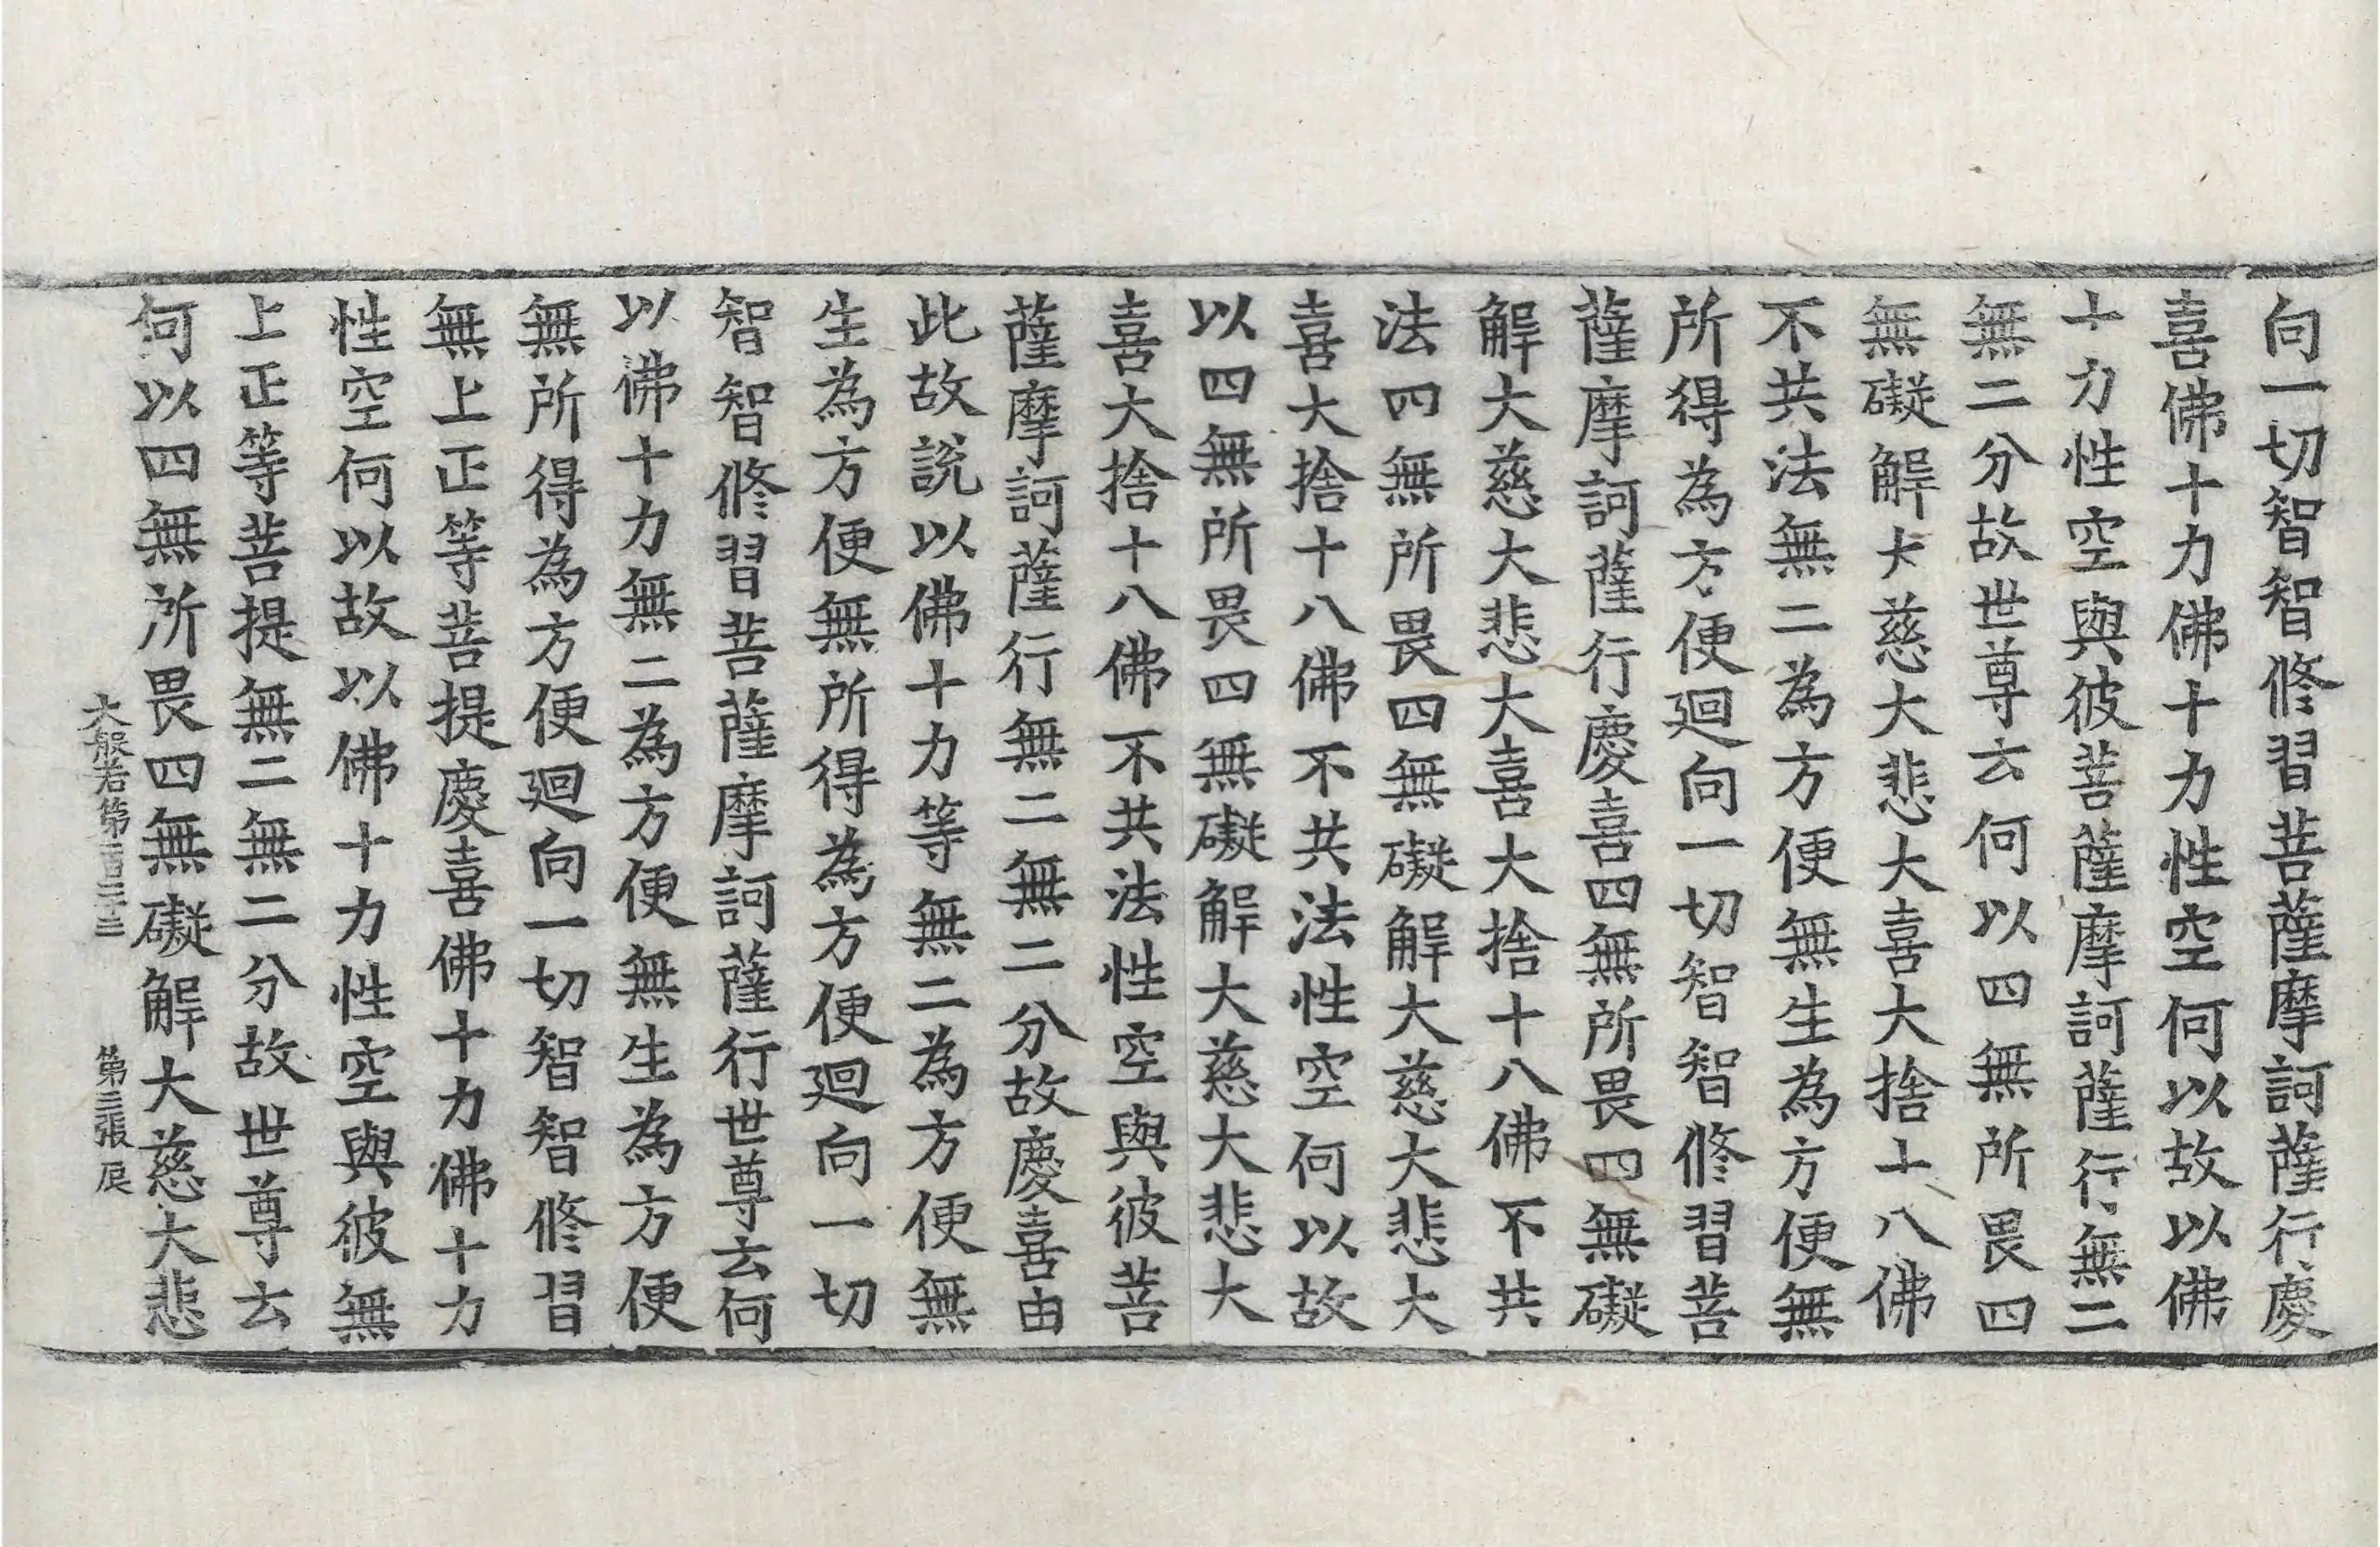 向一切智智修習菩薩摩訶薩行慶
喜佛十力佛十力性空何以故以佛
十力性空與彼菩薩摩訶薩行無二
無二分故世尊云何以四無所畏四
無礙解大慈大悲大喜大捨十八佛
不共法無二為方便無生為方便無
所得為方便迴向一切智智修習菩
薩摩訶薩行慶喜四無所畏四無礙
解大慈大悲大喜大捨十八佛不共
法四無所畏四無礙解大慈大悲大
喜大捨十八佛不共法性空何以故
以四無所畏四無礙解大慈大悲大
喜大捨十八佛不共法性空與彼菩
薩摩訶薩行無二無二分故慶喜由
此故説以佛十力等無二為方便無
生為方便無所得為方便迴向一切
智智修習菩薩摩訶薩行世尊云何
以佛十力無二為方便無生為方便
無所得為方便迴向一切智智修習
無上正等菩提慶喜佛十力佛十力
性空何以故以佛十力性空與彼無
上正等菩提無二無二分故世尊云
何以四無所畏四無礙解大慈大悲
大般若第一百二十三 第三張 辰